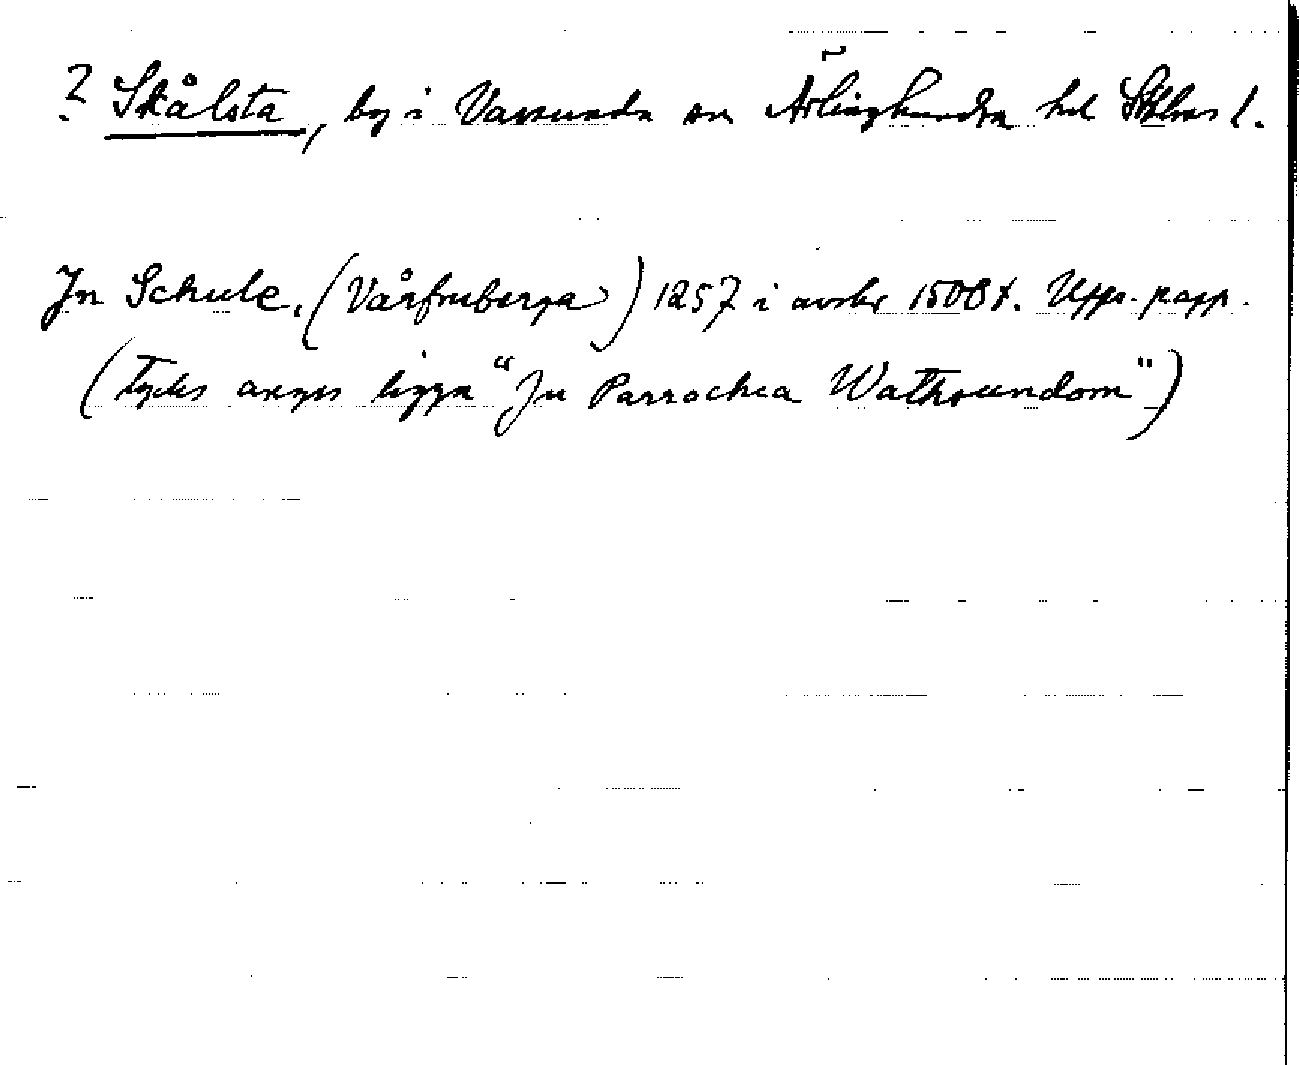 ? Skålsta, by i Vassunda sn Ärlinghundra hd Sthlms l.
In Schule. (Vårfruberga) 1257 i avskr 1500t. Upps. papp.
(tycks anges ligga "In Parrochia Wathsundom")